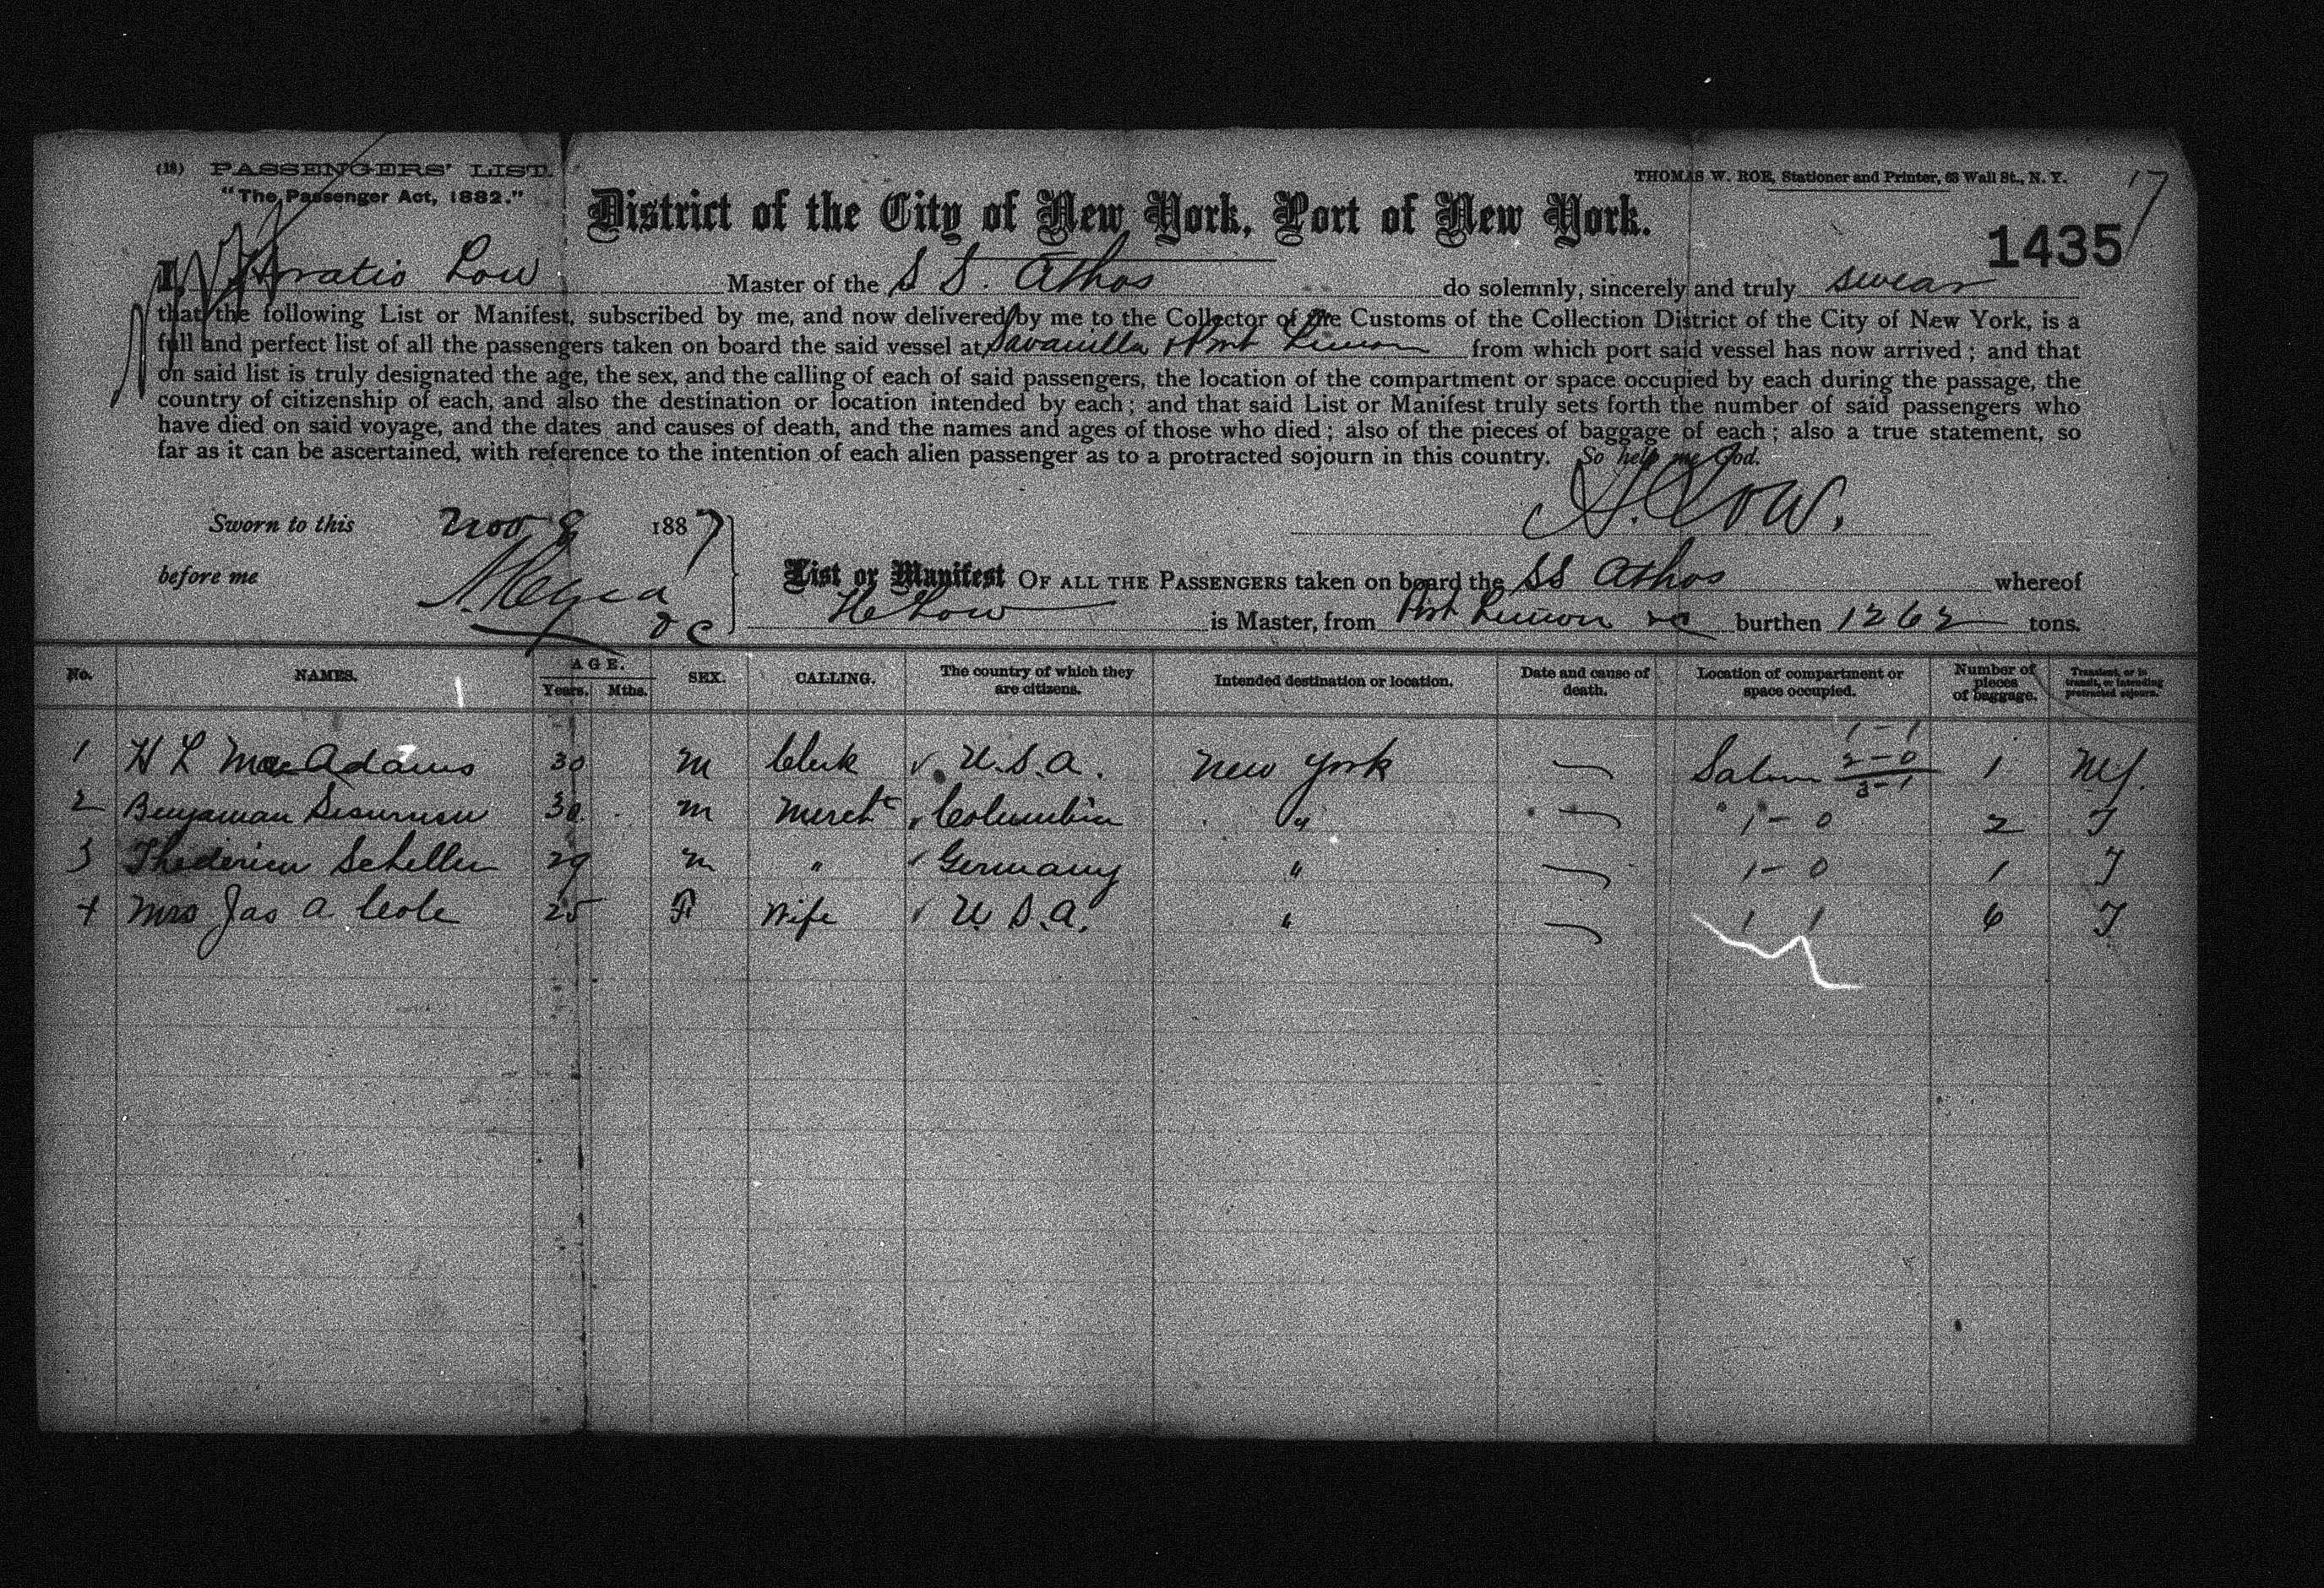 (18) PASSENGERS' LIST.
"The Passenger Act, 1882."
THOMAS W. ROE, Stationer and Printer, 63 Wall St., N. Y.
17
District of the City of New York, Port of New York.
1435
I, Horatio Low Master of the S S. Athos do solemnly, sincerely and truly swear
that the following List or Manifest, subscribed by me, and now delivered by me to the Collector of the Customs of the Collection District of the City of New York, is a
full and perfect list of all the passengers taken on board the said vessel at Savanilla & Port Limon from which port said vessel has now arrived; and that
on said list is truly designated the age, the sex, and the calling of each of said passengers, the location of the compartment or space occupied by each during the passage, the
country of citizenship of each, and also the destination or location intended by each; and that said List or Manifest truly sets forth the number of said passengers who
have died on said voyage, and the dates and causes of death, and the names and ages of those who died; also of the pieces of baggage of each; also a true statement, so
far as it can be ascertained, with reference to the intention of each alien passenger as to a protracted sojourn in this country. So help me God.
H. Low.
Sworn to this Nov 8 1887
before me
D C
List or Manifest OF ALL THE PASSENGERS taken on board the SS Athos whereof
H Low is Master, from Port Limon burthen 1262 tons.
No. NAMES. AGE. Years. Mths. SEX. CALLING. The country of which they are citizens. Intended destination or location. Date and cause of death. Location of compartment or space occupied. Number of pieces of baggage. Transient, or in transit, or intending protracted sojourn.
1 - 1
1 H L MacAdams 30 M Clerk U.S.A. New York Saloon 2 - 0 1 NY.
3 - 1
2 Benjaman 30 M Mercht Columbia " " 1 - 0 2 T
3 Schiller 29 M " Germany " 1 - 0 1 T
4 Mrs Jas A Cole 25 F Wife U.S.A. " 1 1 6 T